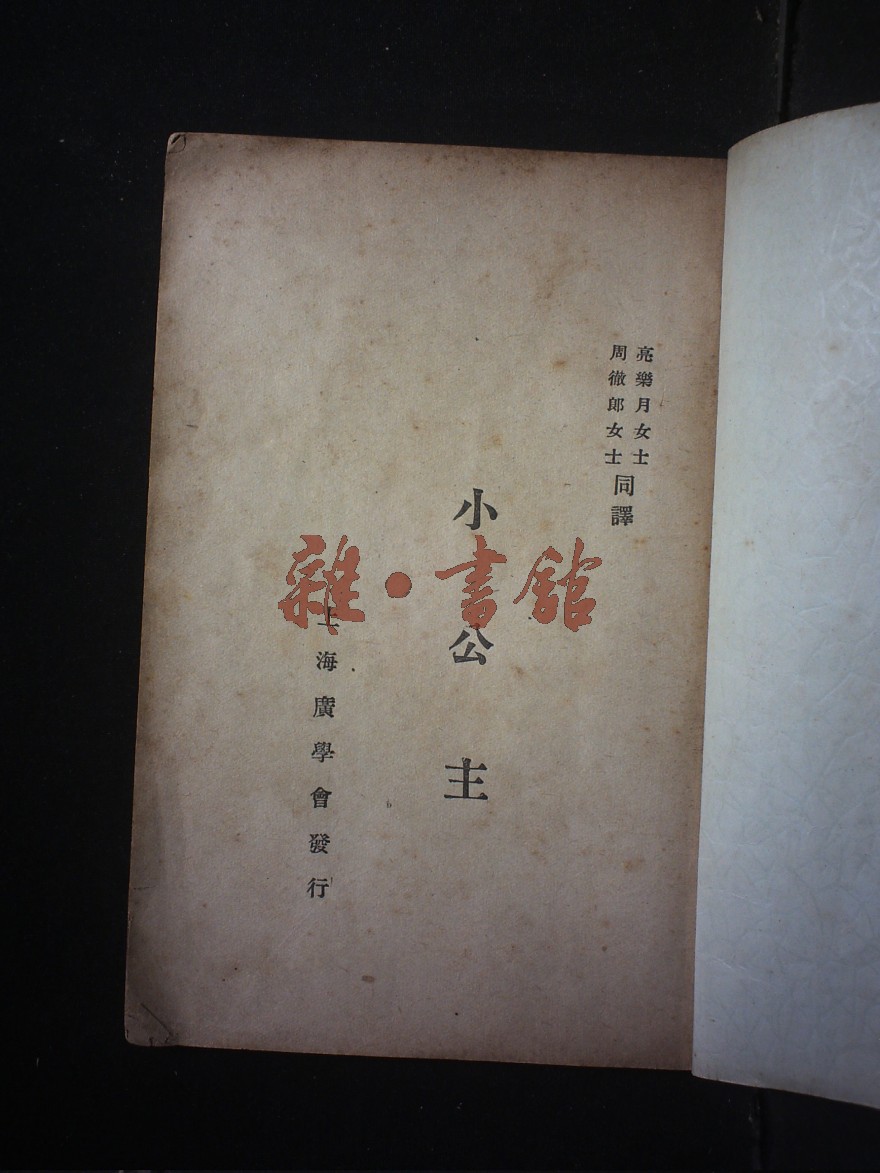 亮樂月女士
周徹郎女士
同譯
小公主
上海廣學會發行
雜·書館